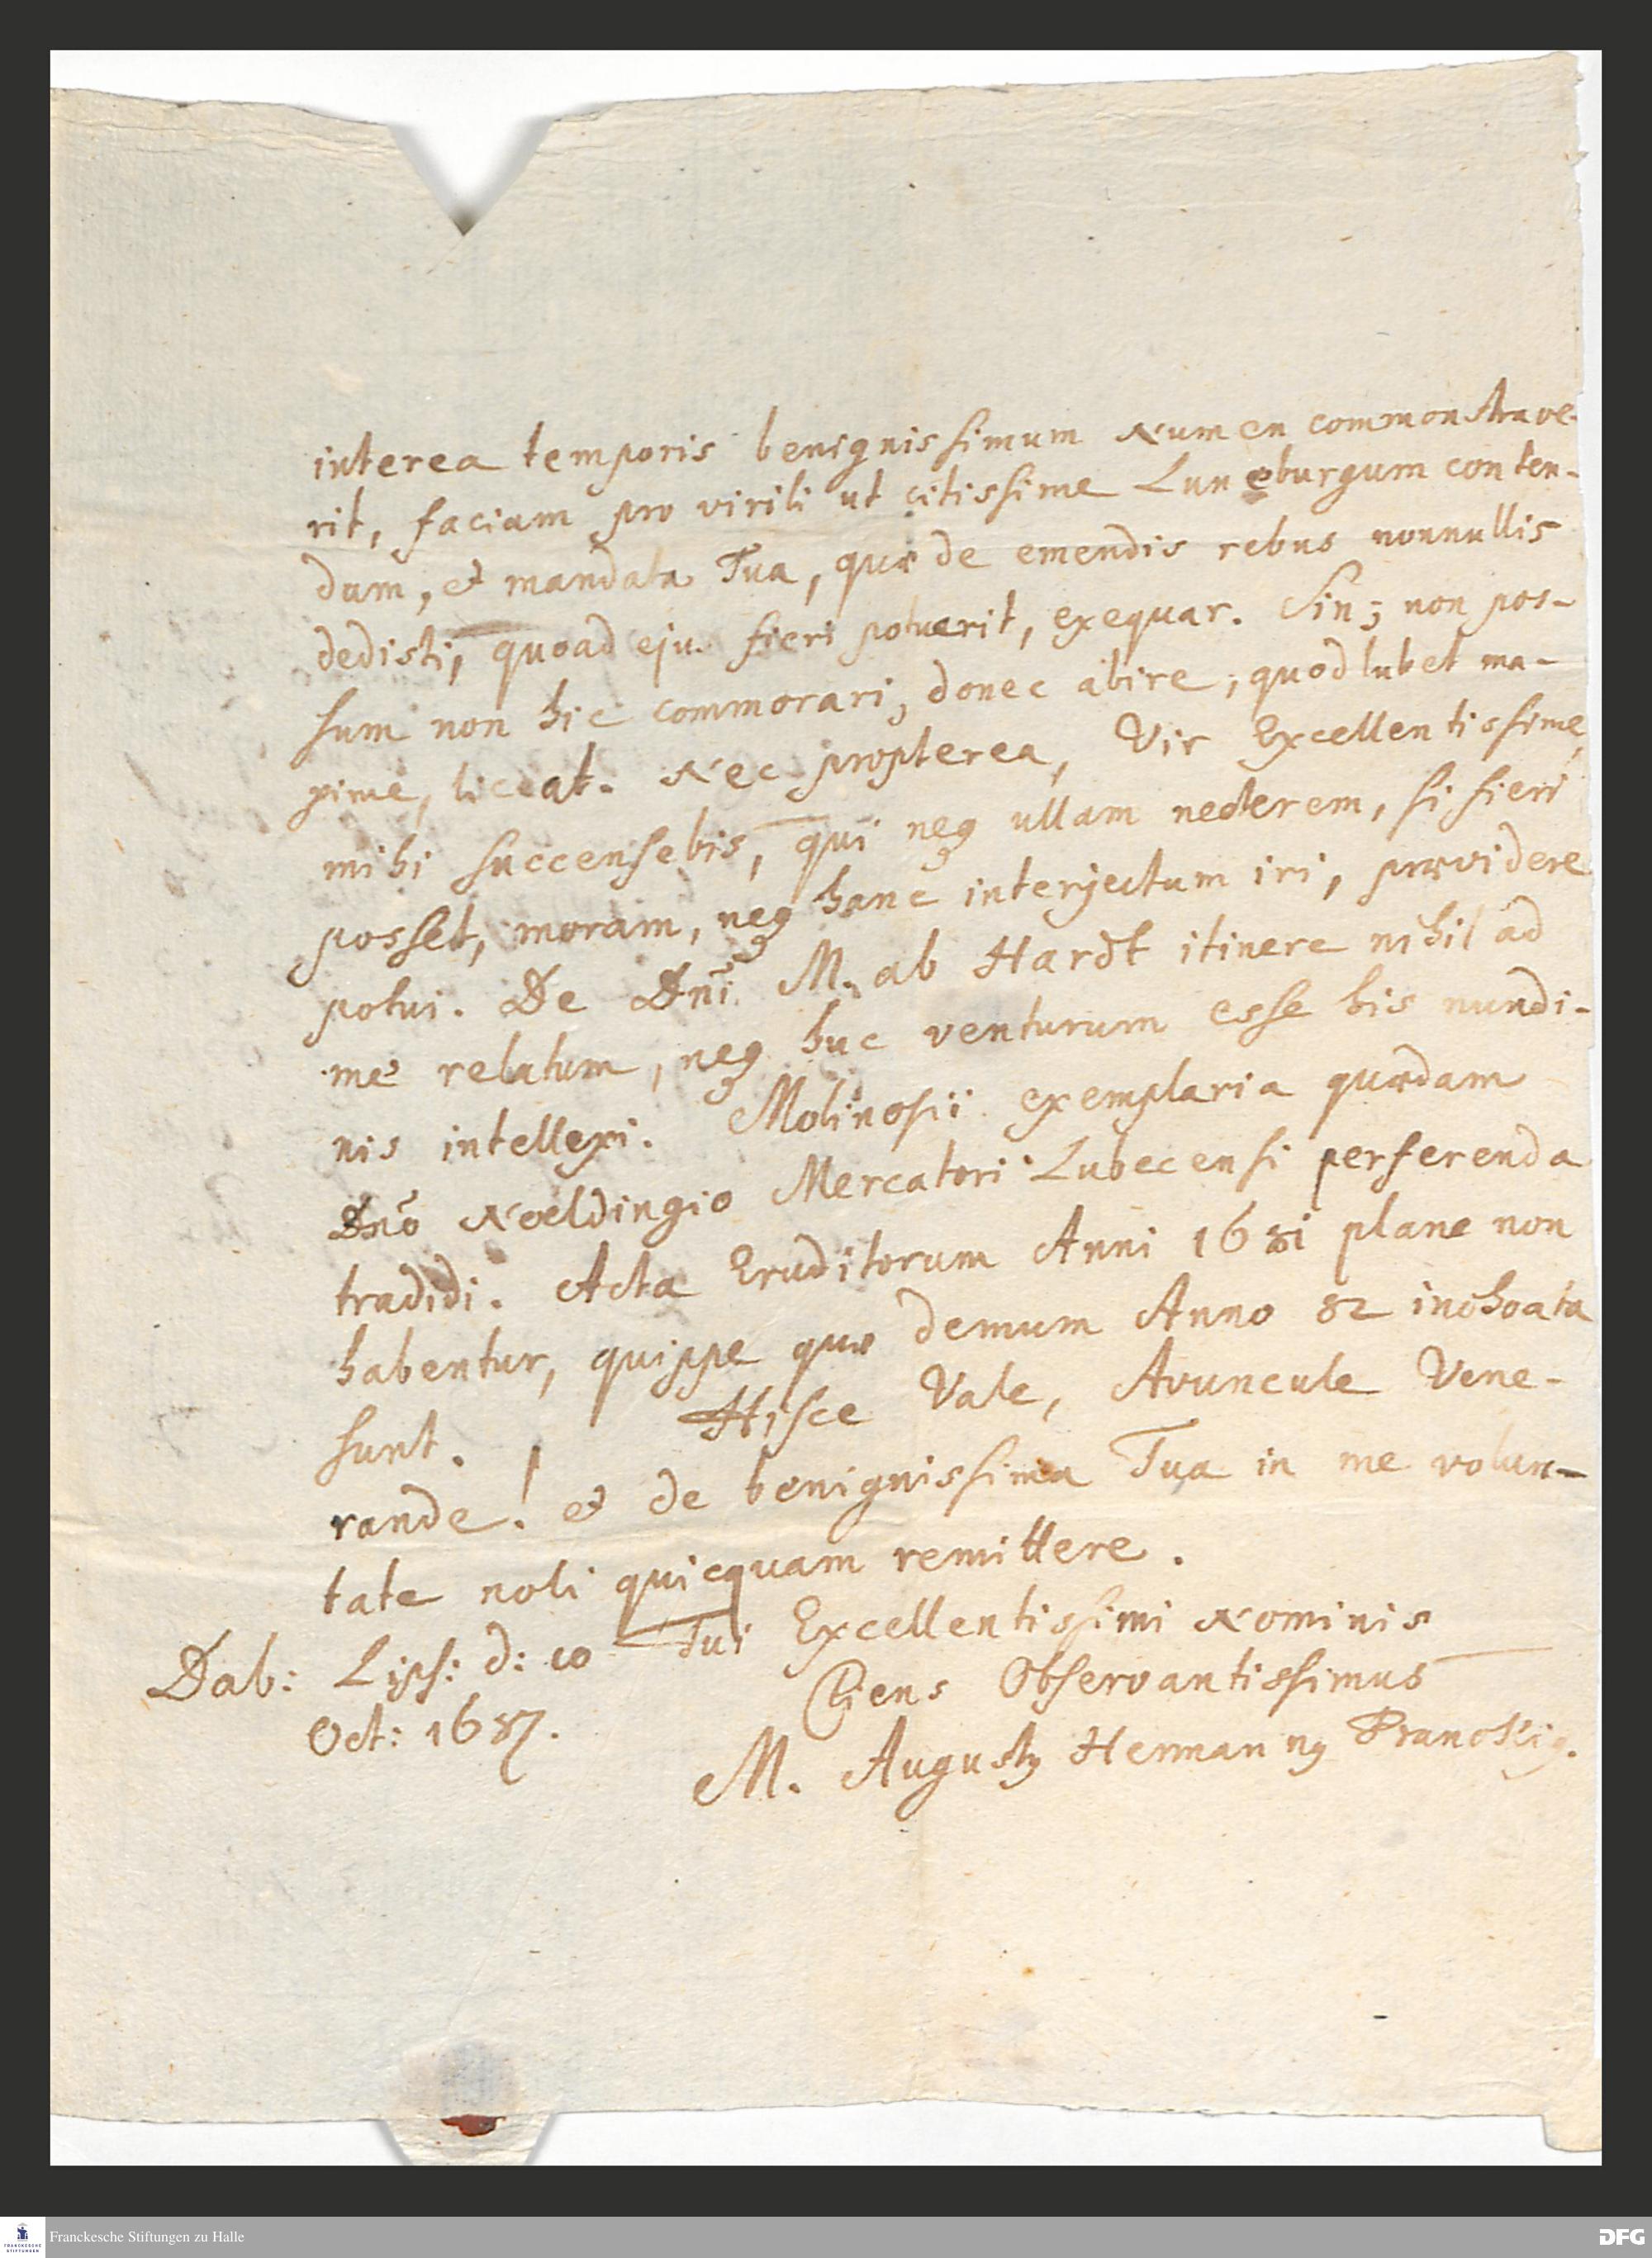 interea temporis benignissimum Numen commonstrave-
rit, faciam pro virili ut citissime Luneburgum conten-
dam, et mandata Tua, quæ de emendis rebus nonnullis
dedisti, quoad eju. fieri potuerit, exequar. Sin; non pos-
sum non hic commorari, donec abire, quod lubet ma-
xime, liceat. Nec propterea, Vir Excellentissime,
mihi succensebis, qui neq ullam necterem, si fieri
posset, moram, neq hanc interjectum iri, prævidere
potui. De Dn̄i M. ab Hardt itinere nihil ad
me relatum, neq huc venturum esse his nundi-
nis intellexi. Molinosii exemplaria quædam
Dn̄o Noeldingio Mercatori Lubecensi perferenda
tradidi. Acta Eruditorum Anni 1681 plane non
habentur, quippe quæ demum Anno 82 inchoata
sunt. Hisce Vale, Avuncule Vene-
rande! et de benignissima Tua in me volun-
tate noli quicquam remittere.
Dab: Lips: d: 10 Tui Excellentissimi Nominis
Oct: 1687. Cliens Observantissimus
M. Augustꝰ Hermannꝰ Franckiꝰ.
Franckesche Stiftungen zu Halle
FRANCKESCHE STIFTUNGEN
DFG